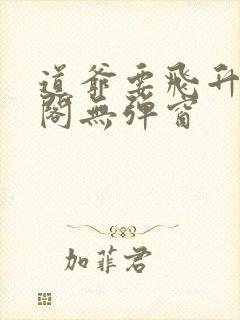 道爺要飛升
閣無彈窗
加菲君